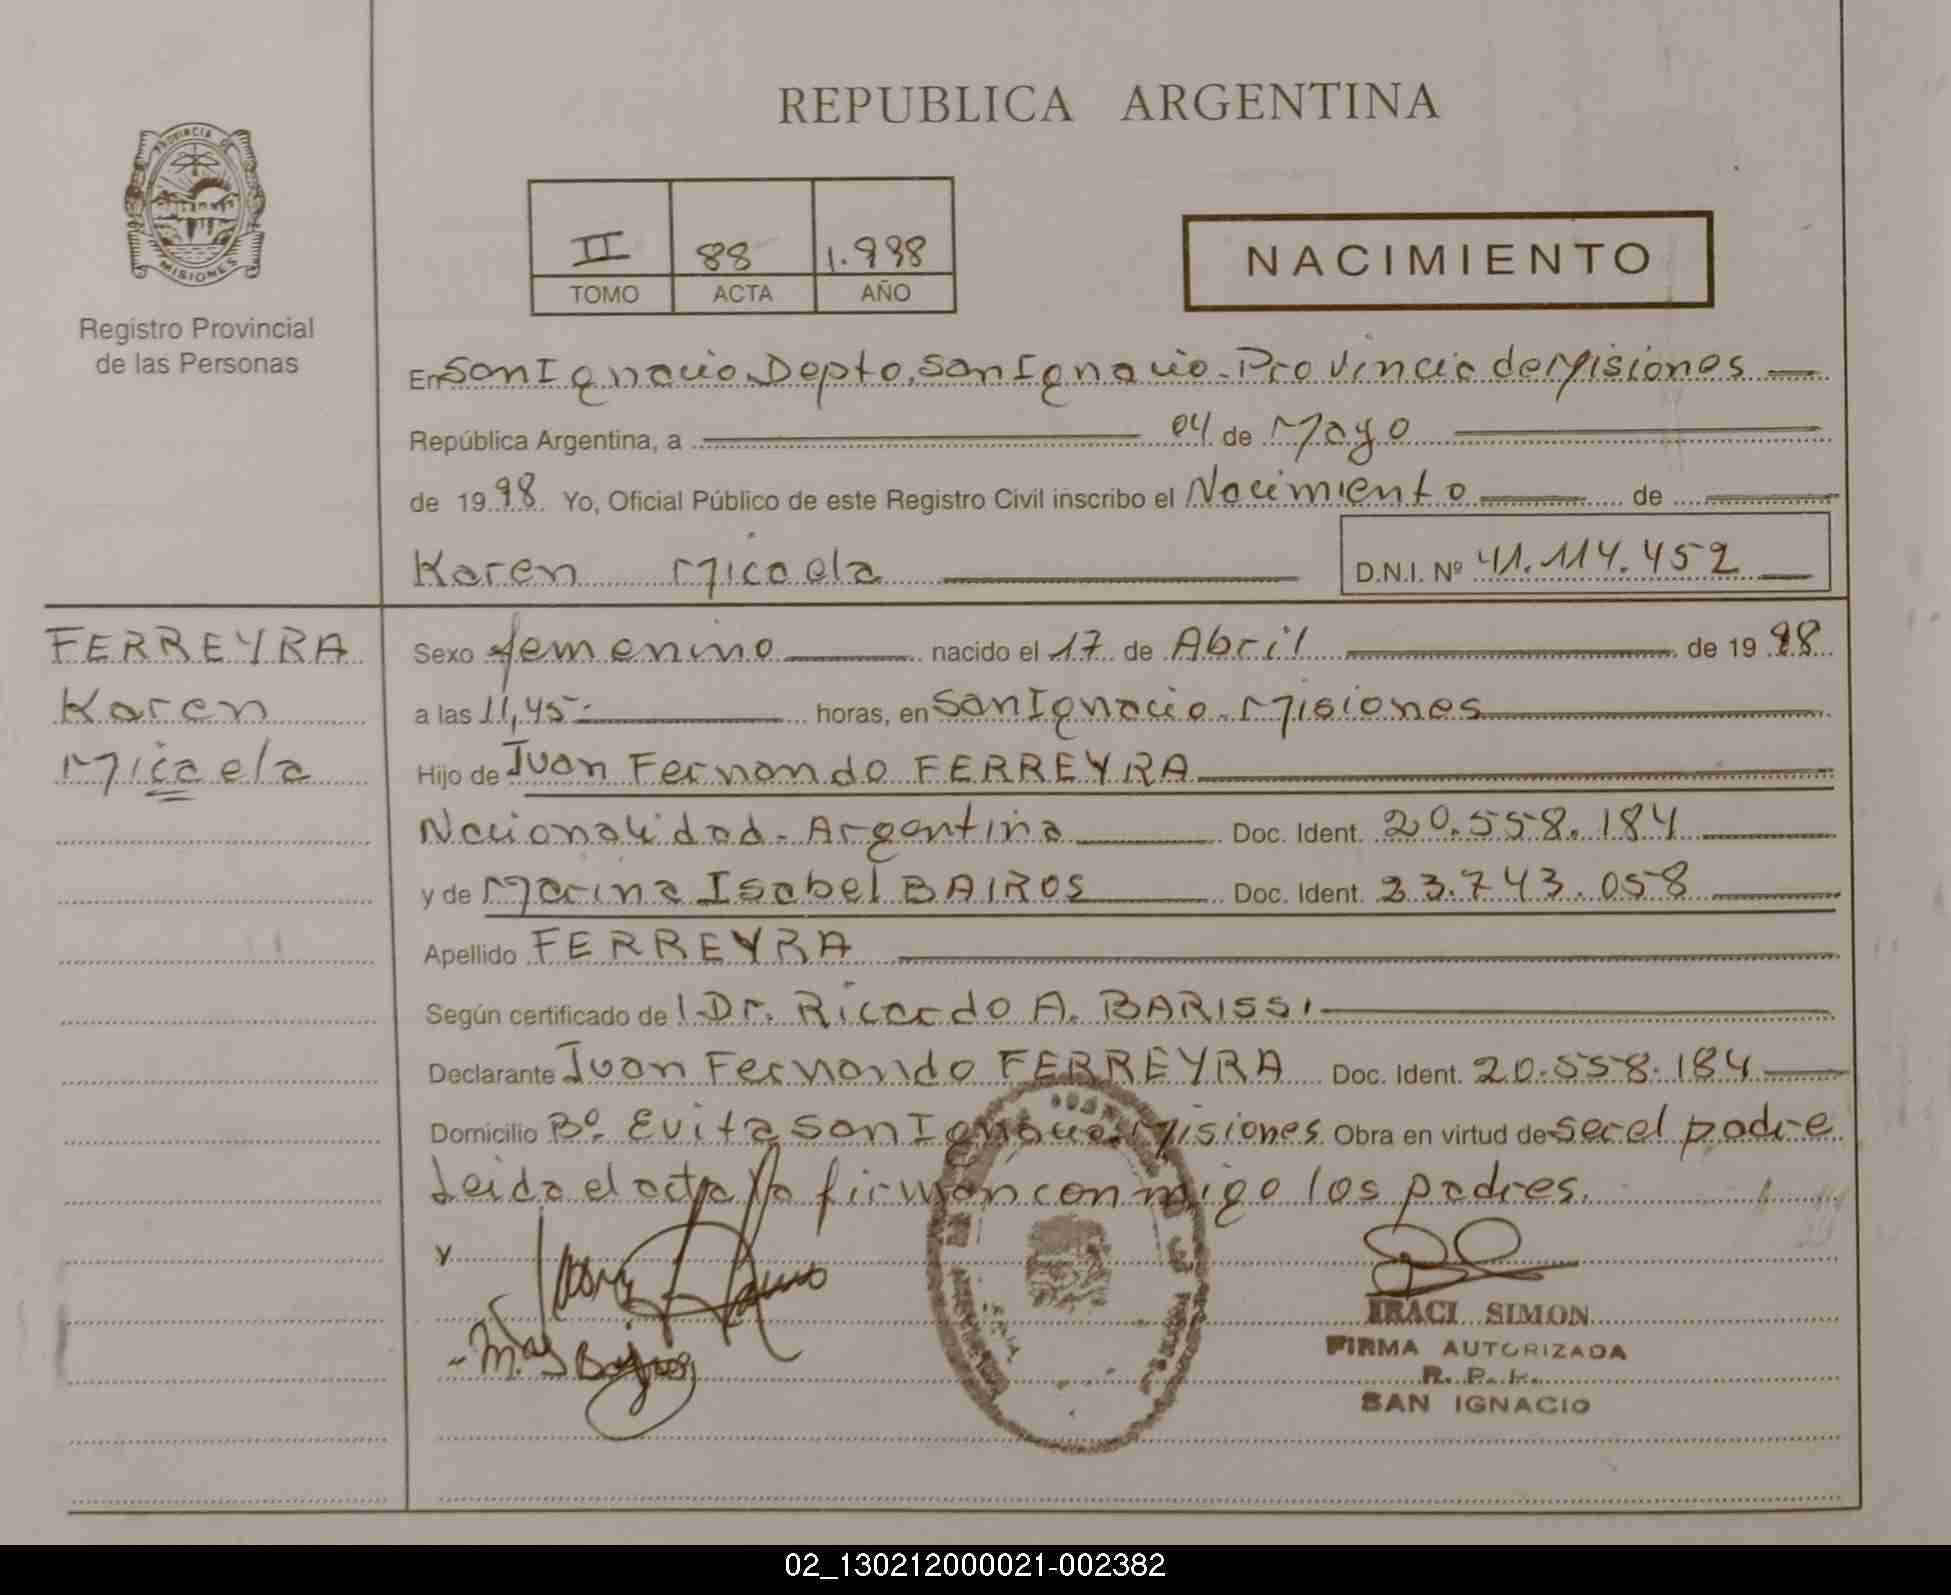 REPUBLICA ARGENTINA
PROVINCIA DE
MISIONES
Registro Provincial
de las Personas
II 88 1.998
TOMO ACTA AÑO
NACIMIENTO
En San Ignacio. Depto. San Ignacio - Provincia de Misiones
República Argentina, a 04 de Mayo
de 1998 Yo, Oficial Público de este Registro Civil inscribo el Nacimiento de
Karen Micaela D.N.I. Nº 41.114.452
FERREYRA
Karen
Micaela
Sexo femenino nacido el 17 de Abril de 1998
a las 11,45- horas, en San Ignacio - Misiones
Hijo de Juan Fernando FERREYRA
Nacionalidad - Argentina Doc. Ident. 20.558.184
y de Marina Isabel BAIROS Doc. Ident. 23.743.058
Apellido FERREYRA
Según certificado de l Dr. Ricardo A. BARISSI
Declarante Juan Fernando FERREYRA Doc. Ident. 20.558.184
Domicilio Bº. Evita San Ignacio - Misiones Obra en virtud de ser el padre
Leida el acta la firman conmigo los padres.
y
IRACI SIMON
FIRMA AUTORIZADA
R. P. P.
SAN IGNACIO
02_130212000021-002382